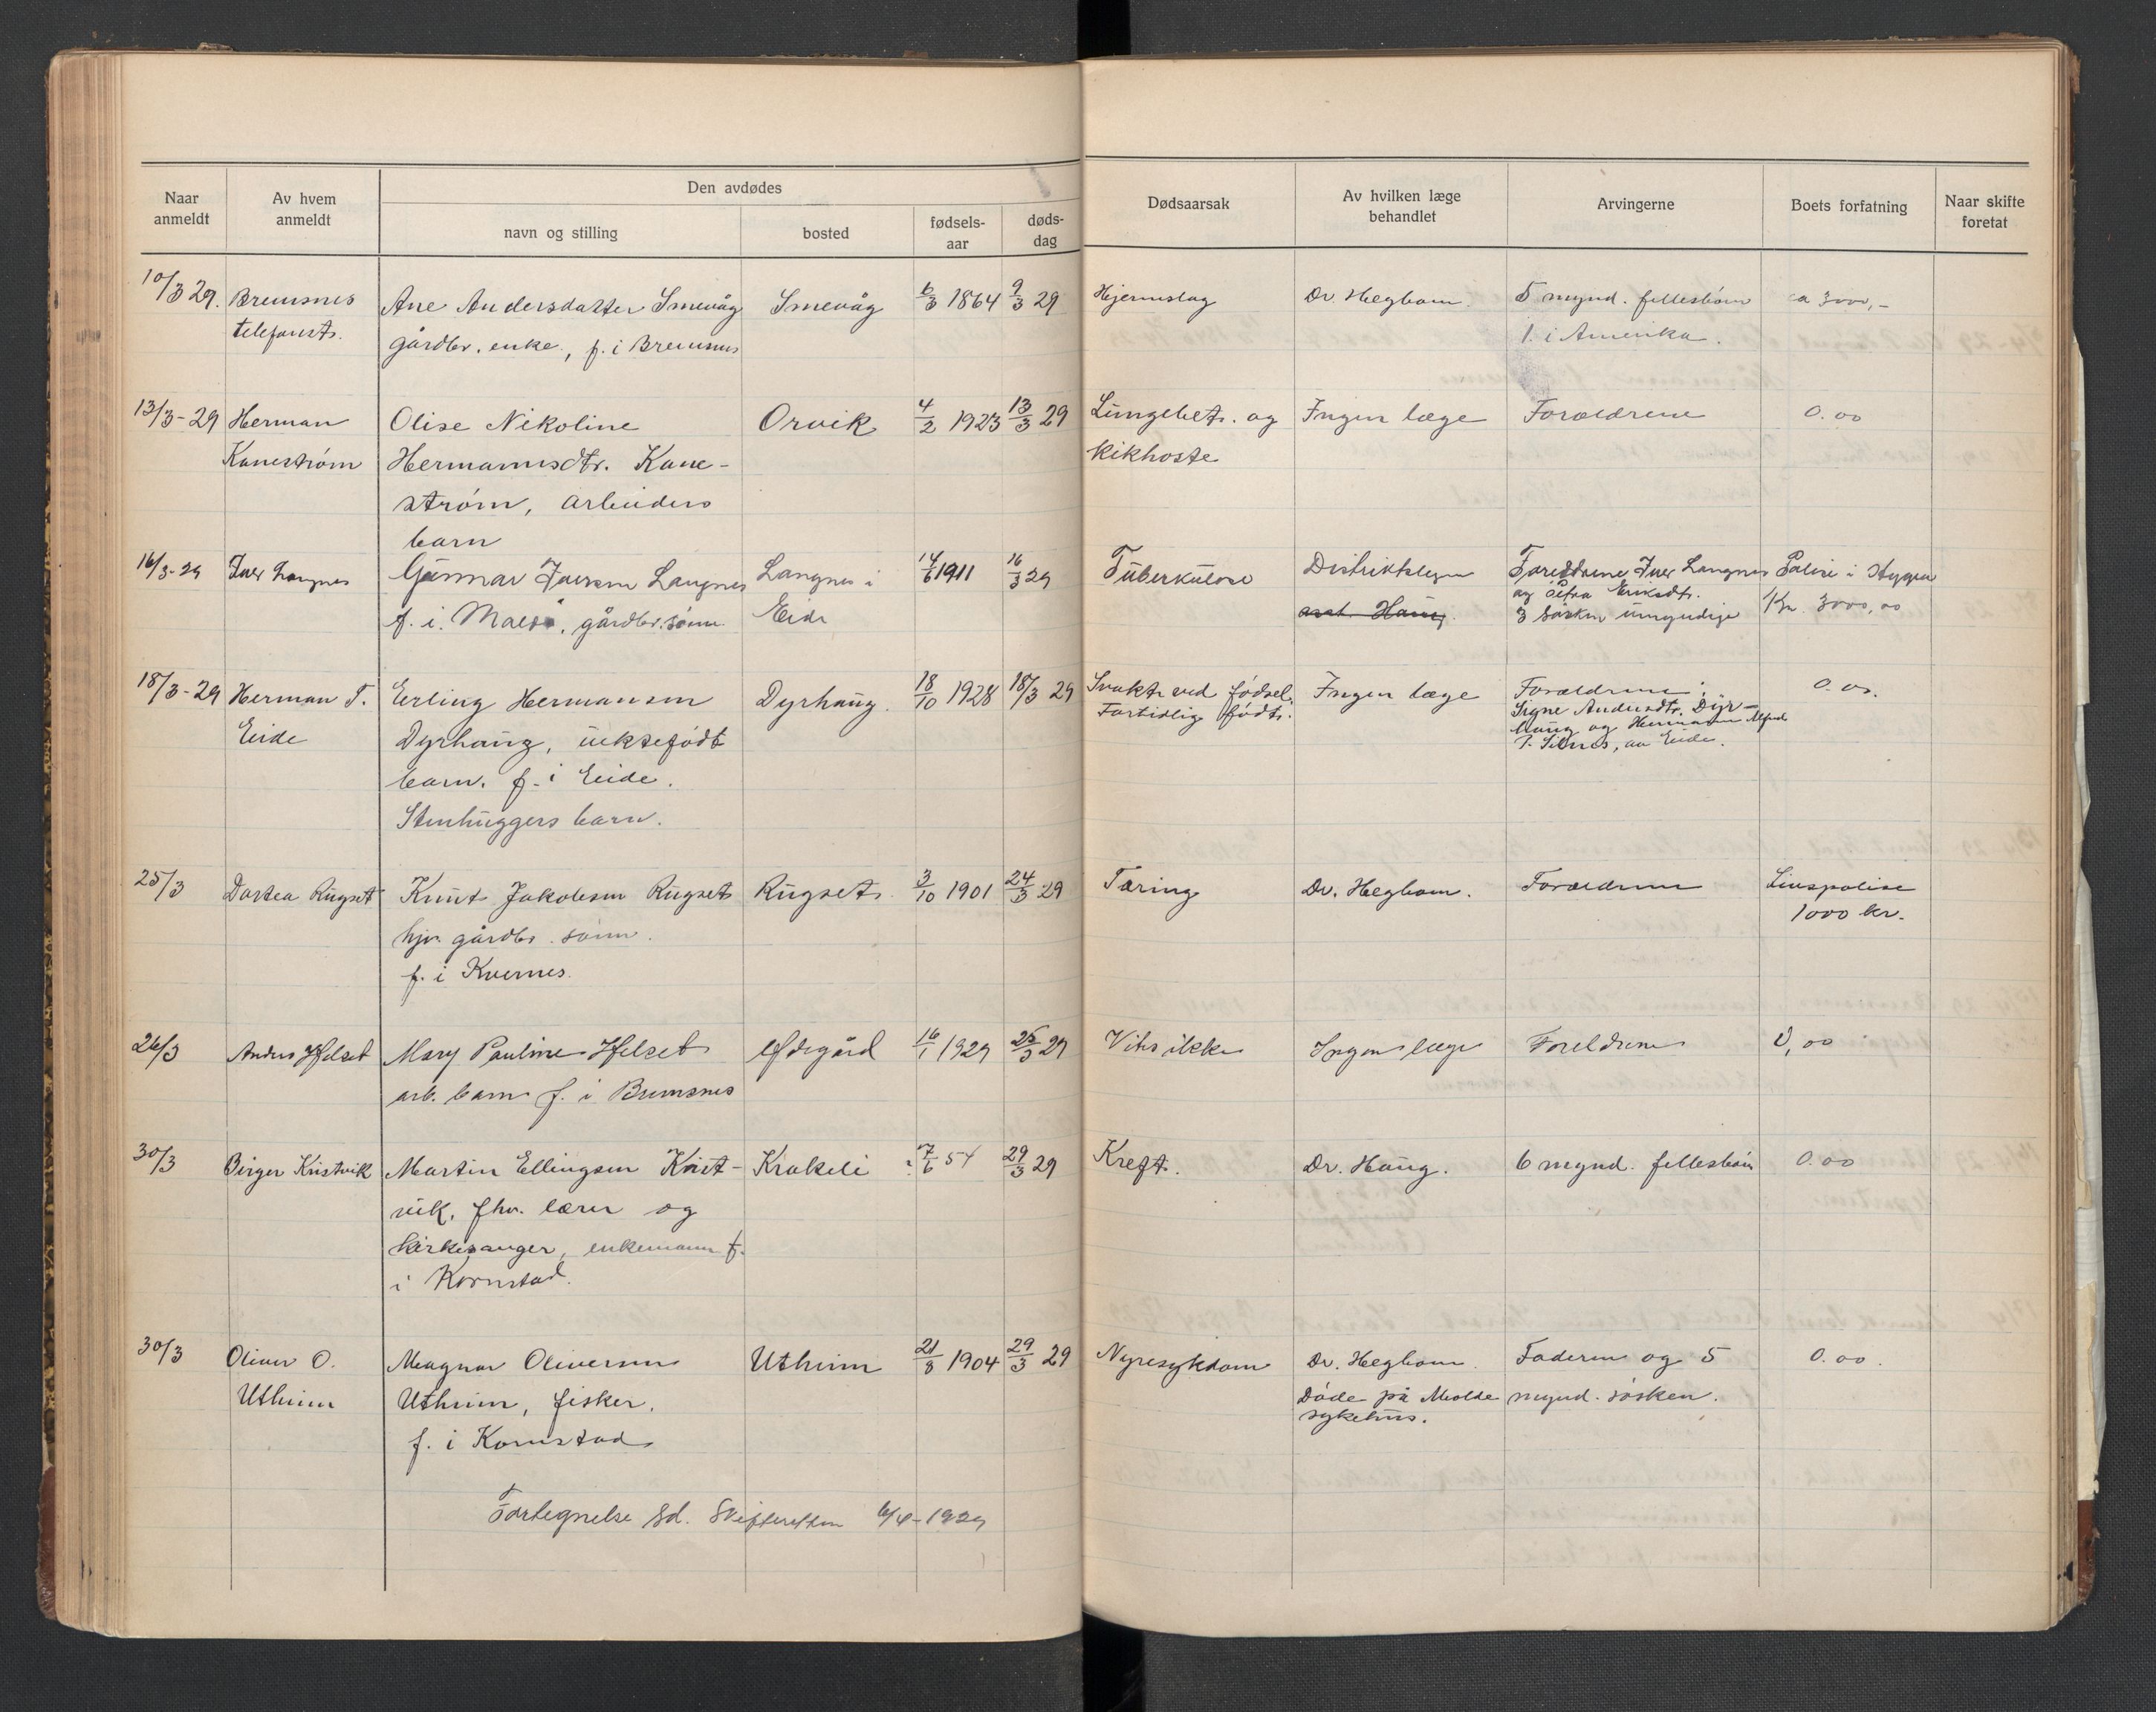 Naar anmeldt
Av hvem anmeldt
Den avdødes
navn og stilling
bosted
fødsels-aar
døds-dag
Dødsaarsak
Av hvilken læge behandlet
Arvingerne
Boets forfatning
Naar skifte foretat
10/3 29. Bremsnes Ane Andersdatter Smevåg Smevåg 6/3 1864 9/3 29 Hjerneslag Dr. Heglom. 5 mynd. fellesbörn ca 3000,-
telefonst. gårdbr. enke, f. i Bremsnes 1. i Amerika.
13/3-29 Herman Olise Nikoline Orvik 4/2 1923 13/3 29 Lungebet. og Ingen læge Forældrene 0.00
Kaneström Hermannsdtr. Kane- kikhoste
ström, arbeiders
barn
16/3-29 Iver Langnes Gunnar Iversen Langnes Langnes i 14/6 1911 16/3 29 Tuberkulose Distriktslegen Foreldrene Iver Langnes Polise i Hygea
og Petra Eriksdtr.
f. i. gårdbr. sönn. Eide Haug. 3 sösken umyndige Kr. 3000,00
18/3-29 Herman T. Erling Hermansen Dyrhaug. 18/10 1928 18/3 29 Svakt ved födsel. Ingen læge Forældrene: 0.00.
Eide Dyrhaug, uektefödt Fortidlig födt. Signe Andersdtr. Dyr-
barn. f. i Eide. haug og Hermann Alfred
Stenhuggers barn. T. Silnes, au Eide.
25/3 Dortea Rugset Knut Jakobsen Rugset Rugset 3/10 1901 24/3 29 Tæring Dr. Heglom. Forældrene Livspolise
gårdbr. sönn. 1000 kr.
f. i Kvernes.
26/3 Anders Mary Pauline Ödegård 16/1 1929 25/3 29 Vites ikke Ingen læge Foreldrene 0,00
arb. barn f. i Bremsnes
30/3 Birger Kristvik Martin Ellingsen Krist- Krakeli 7/6 54 29/3 29 Kreft. Dr. Haug. 6 mynd. fellesbörn 0.00
vik, fhv. lærer og
kirkesanger, enkemann f.
i Kornstad.
30/3 Oliver O. Magnar Oliversen Utheim 21/8 1904 29/3 29 Nyresykdom Dr. Heglom. Faderen og 5 0.00.
Utheim Utheim, fisker. Döde på Molde mynd. sösken.
f. i Kornstad sykehus.
Fortegnelse sd. Skifteretten 6/4-1929